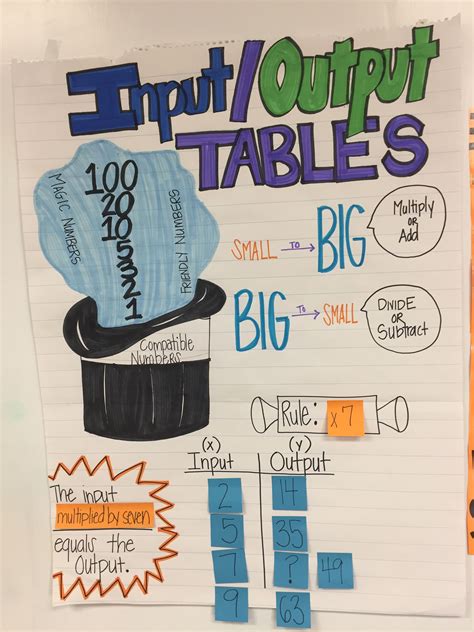 Input/Output
TABLES
MAGIC NUMBERS
100
20
10
5
3
2
1
FRIENDLY NUMBERS
Compatible
Numbers
SMALL TO BIG
Multiply
OR
Add
BIG TO SMALL
DIVIDE
OR
Subtract
Rule: x7
(x) (y)
Input Output
2 14
5 35
7 ? 49
9 63
The input
multiplied by seven
equals the
Output.